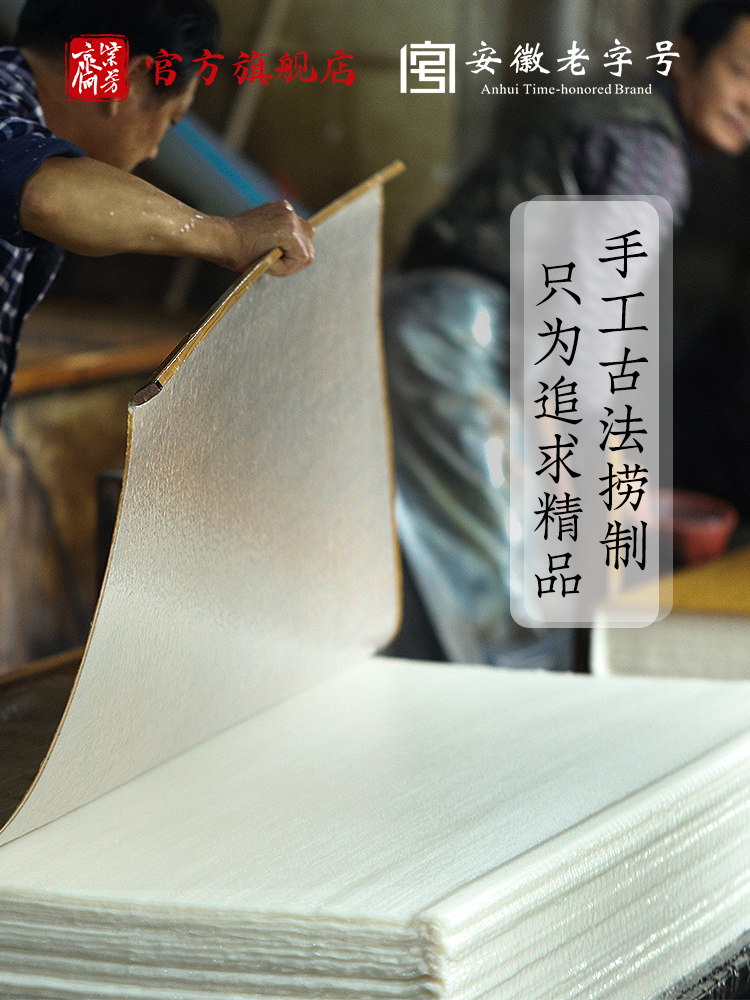 紫芳齋
官方旗舰店
安徽老字号
Anhui Time-honored Brand
手工古法捞制
只为追求精品